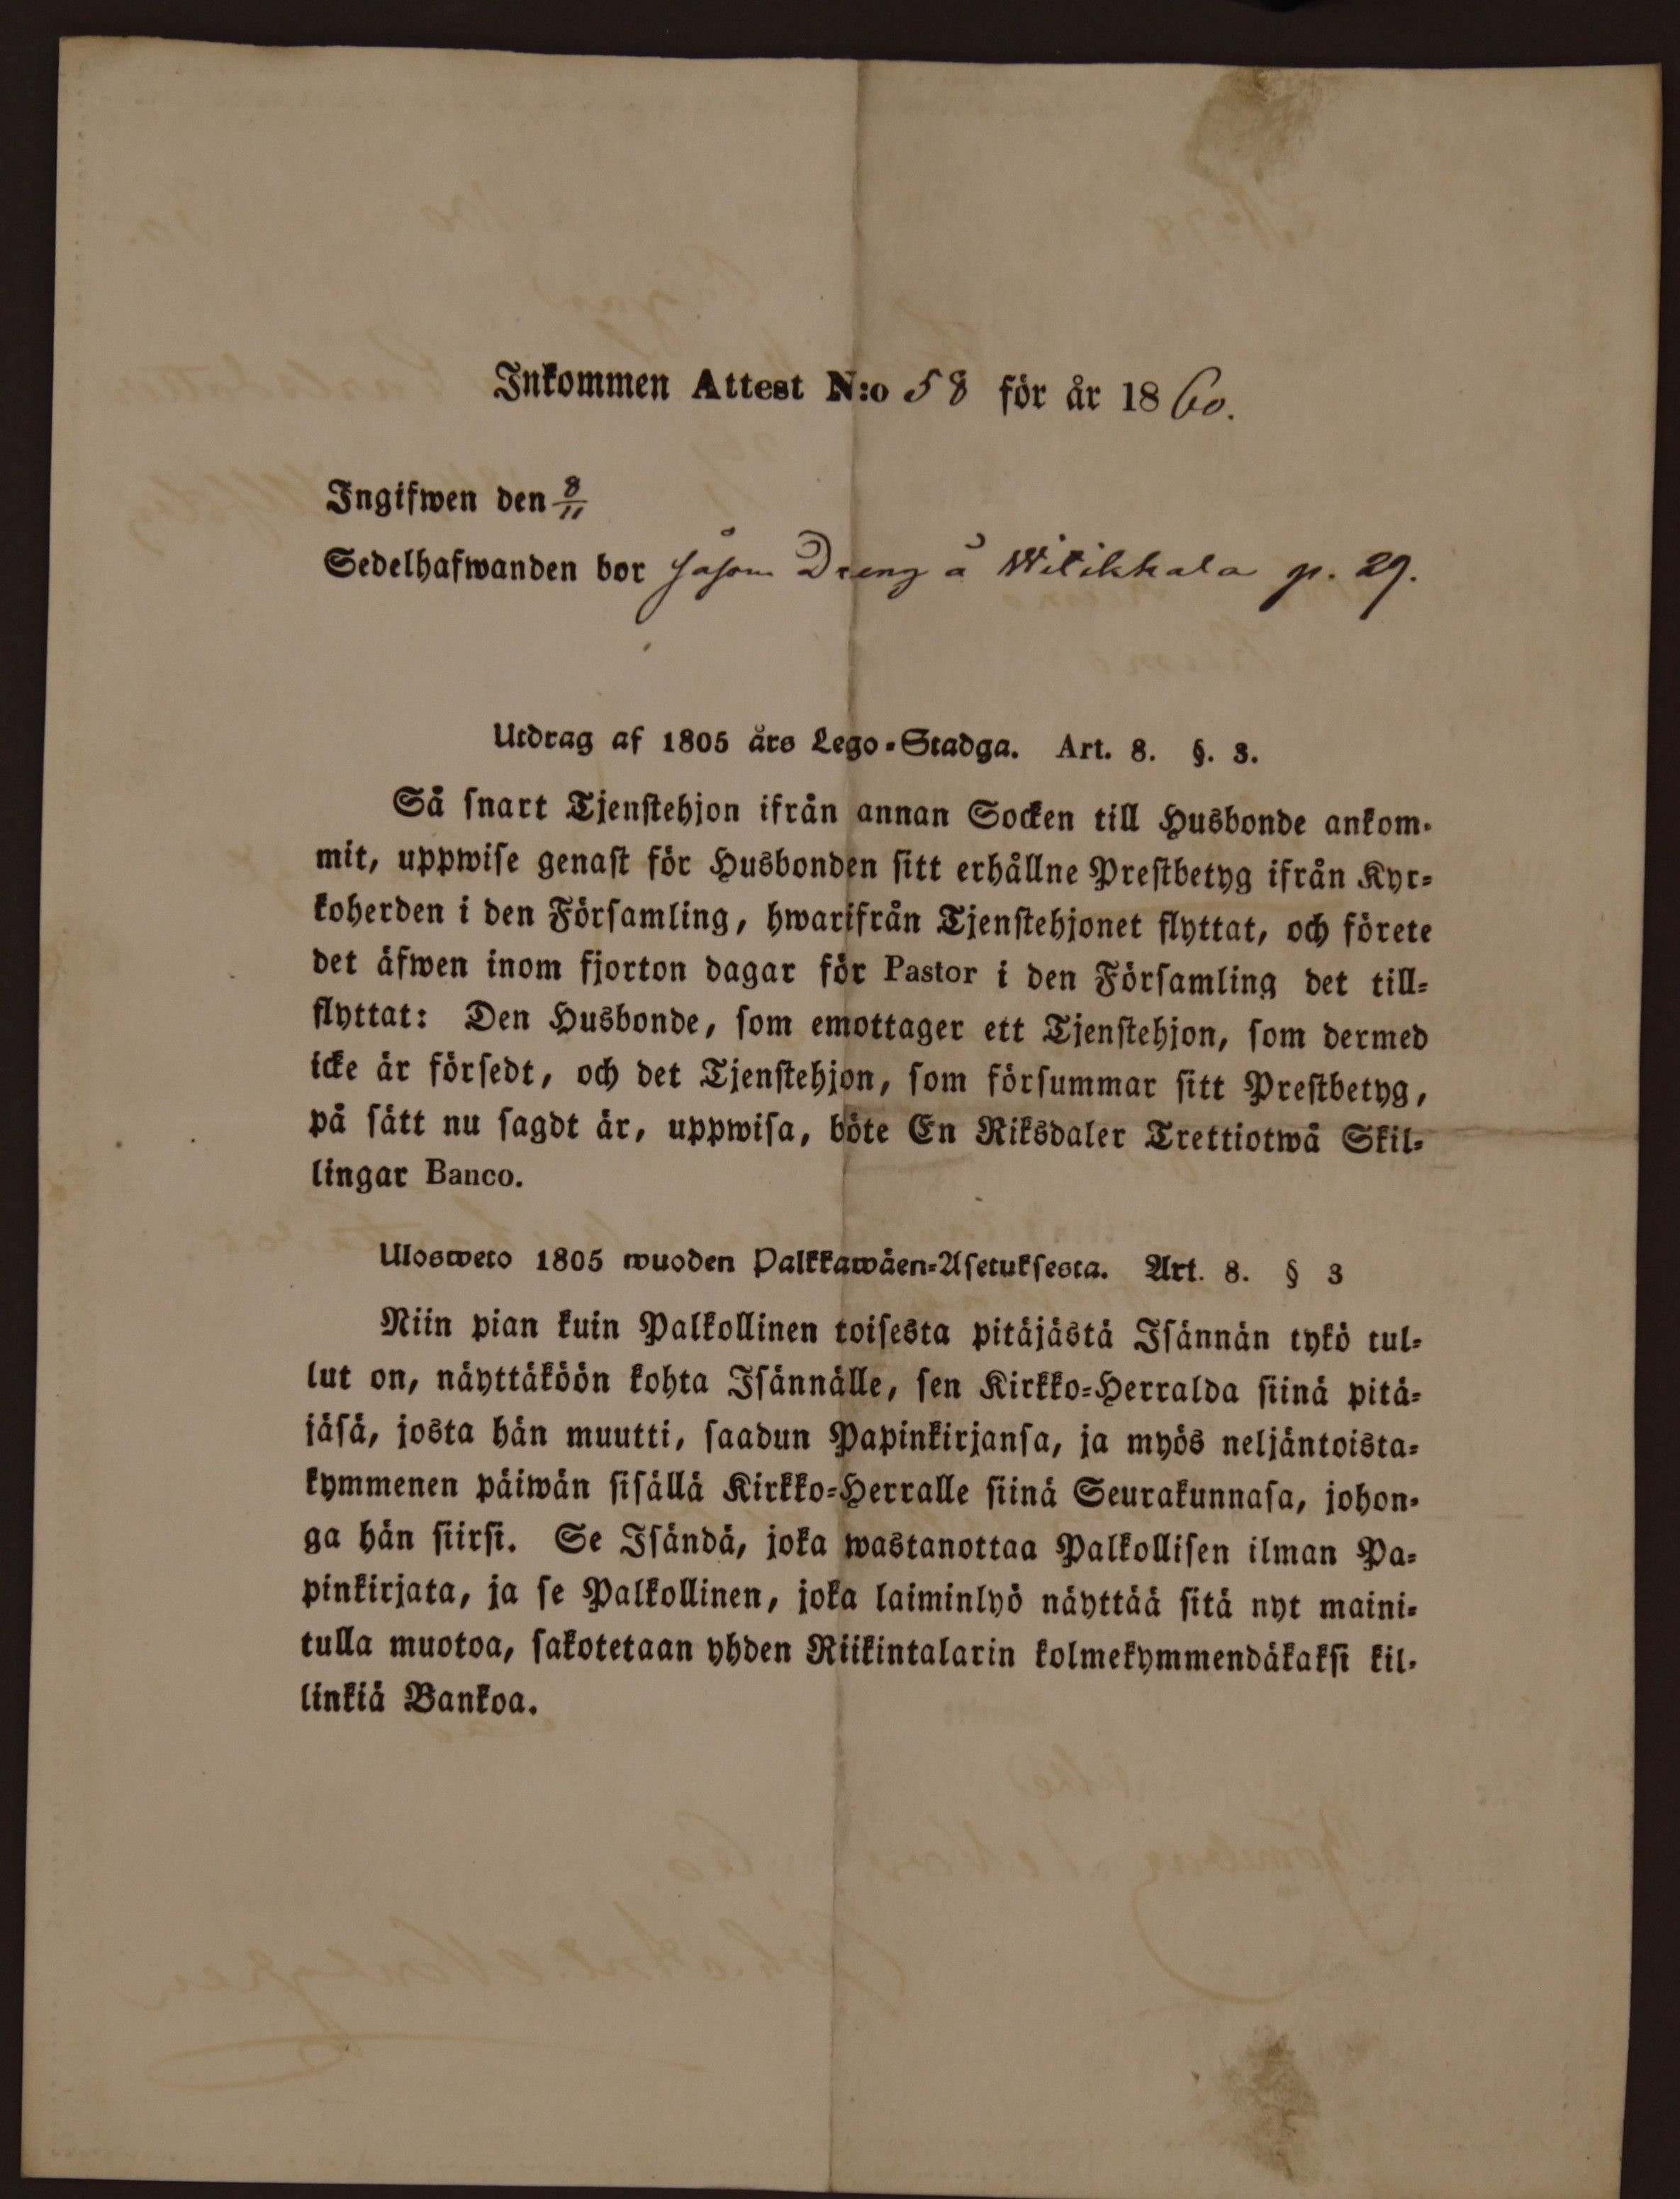 Inkommen Attest N:o 58 för år 1860.
Ingifwen den 8/11
Sedelhafwanden bor såsom Dreng å Witikkala p. 29.
Utdrag af 1805 års Lego-Stadga. Art. 8. §. 3.
Så snart Tjenstehjon ifrån annan Socken till Husbonde ankom-
mit, uppwise genast för Husbonden sitt erhållne Prestbetyg ifrån Kyr-
koherden i den Församling, hwarifrån Tjenstehjonet flyttat, och förete
det äfwen inom fjorton dagar för Pastor i den Församling det till-
flyttat: Den Husbonde, som emottager ett Tjenstehjon, som dermed
icke är försedt, och det Tjenstehjon, som försummar sitt Prestbetyg,
på sätt nu sagdt är, uppwisa, böte En Riksdaler Trettiotwå Skil-
lingar Banco.
Ulosweto 1805 wuoden Palkkawäen-Asetuksesta. Art. 8. § 3
Niin pian kuin Palkollinen toisesta pitäjästä Isännän tykö tul-
lut on, näyttäköön kohta Isännälle, sen Kirkko-Herralda siinä pitä-
jäsä, josta hän muutti, saadun Papinkirjansa, ja myös neljäntoista-
kymmenen päiwän sisällä Kirkko-Herralle siinä Seurakunnasa, johon-
ga hän siirsi. Se Isändä, joka wastanottaa Palkollisen ilman Pa-
pinkirjata, ja se Palkollinen, joka laiminlyö näyttää sitä nyt maini-
tulla muotoa, sakotetaan yhden Riikintalarin kolmekymmendäkaksi kil-
linkiä Bankoa.